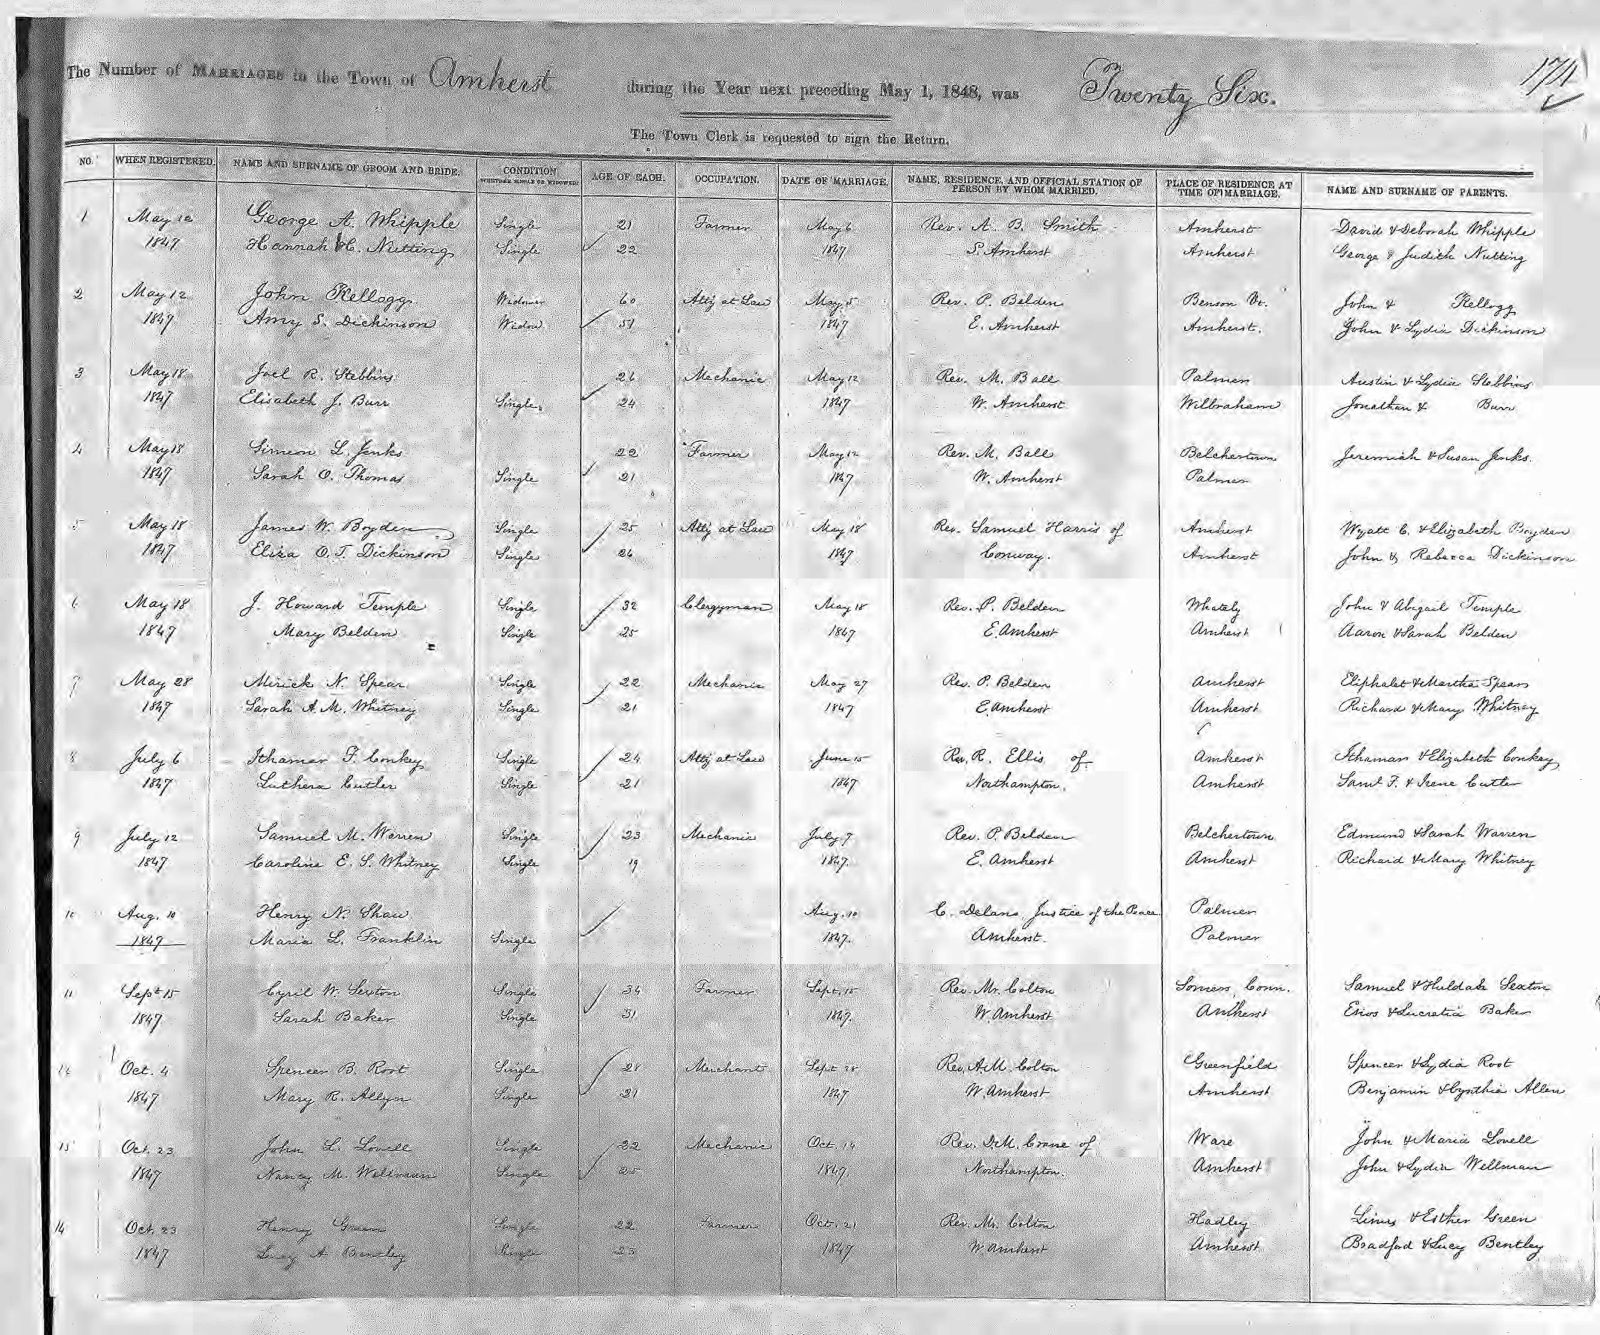 The Number of MARRIAGES in the Town of Amherst during the Year next preceding May 1, 1848, was Twenty Six.
174
The Town Clerk is requested to sign the Return.
NO. WHEN REGISTERED. NAME AND SURNAME OF GROOM AND BRIDE. CONDITION WHETHER SINGLE OR WIDOWED. AGE OF EACH. OCCUPATION. DATE OF MARRIAGE. NAME, RESIDENCE, AND OFFICIAL STATION OF PERSON BY WHOM MARRIED. PLACE OF RESIDENCE AT TIME OF MARRIAGE. NAME AND SURNAME OF PARENTS.
1 May 12 George A. Whipple Single 21 Farmer May 6 Rev. A. B. Smith Amherst David & Deborah Whipple
1847 Hannah H. Nutting Single 22 1847 S. Amherst Amherst George & Judith Nutting
2 May 12 John Kellogg Widower 60 Atty at Law May 5 Rev. P. Belden Benson Vt. John & Kellogg
1847 Amy S. Dickinson Widow 51 1847 E. Amherst Amherst. John & Lydia Dickinson
3 May 18 Joel R. Stebbins 26 Mechanic May 12 Rev. M. Ball Palmer Austin & Lydia Stebbins
1847 Elisabeth J. Burr Single 24 1847 W. Amherst Wilbraham Jonathan & Burr
4 May 18 Simeon L. Jenks 22 Farmer May 12 Rev. M. Ball Belchertown Jeremiah & Susan Jenks.
1847 Sarah O. Thomas Single 21 1847 W. Amherst Palmer
5 May 18 James W. Boyden Single 25 Atty at Law May 18 Rev. Samuel Harris of Amherst Wyatt C. & Elizabeth Boyden
1847 Eliza O. T. Dickinson Single 26 1847 Conway. Amherst John & Rebecca Dickinson
6 May 18 J. Howard Temple Single 32 Clergyman May 18 Rev. P. Belden Whately John & Abigail Temple
1847 Mary Belden Single 25 1847 E. Amherst Amherst Aaron & Sarah Belden
7 May 28 Mirick N. Spear Single 22 Mechanic May 27 Rev. P. Belden Amherst Eliphalet & Martha Spear
1847 Sarah A. M. Whitney Single 21 1847 E. Amherst Amherst Richard & Mary Whitney
8 July 6 Ithamar F. Conkey Single 24 Atty at Law June 15 Rev. R. Ellis of Amherst Ithamar & Elizabeth Conkey
1847 Luthera Cutler Single 21 1847 Northampton. Amherst Saml F. & Irene Cutler
9 July 12 Samuel M. Warren Single 23 Mechanic July 7 Rev. P. Belden Belchertown Edmund & Sarah Warren
1847 Caroline E. S. Whitney Single 19 1847. E. Amherst Amherst Richard & Mary Whitney
10 Aug. 10 Henry N. Shaw Aug. 10 C. Delano Justice of the Peace Palmer
1847 Maria L. Franklin Single 1847. Amherst. Palmer
11 Sept 15 Cyril W. Sexton Single 34 Farmer Sept. 15 Rev. Mr. Colton Somers Conn. Samuel & Huldah Sexton
1847 Sarah Baker Single 31 1847. W. Amherst Amherst Enos & Lucretia Baker
12 Oct. 4 Spencer B. Root Single 28 Merchant Sept 28 Rev. A. M. Colton Greenfield Spencer & Lydia Root
1847 Mary R. Allyn Single 21 1847 W. Amherst Amherst Benjamin & Cynthia Allen
13 Oct. 23 John L. Lovell Single 22 Mechanic Oct. 14 Rev. D. M. Crane of Ware John & Maria Lovell
1847 Nancy M. Wellman Single 25 1847. Northampton. Amherst John & Lydia Wellman
14 Oct. 23 Henry Green Single 22 Farmer Oct. 21 Rev. Mr. Colton Hadley Linus & Esther Green
1847 Lucy A. Bentley Single 23 1847 W. Amherst Amherst. Bradford & Lucy Bentley